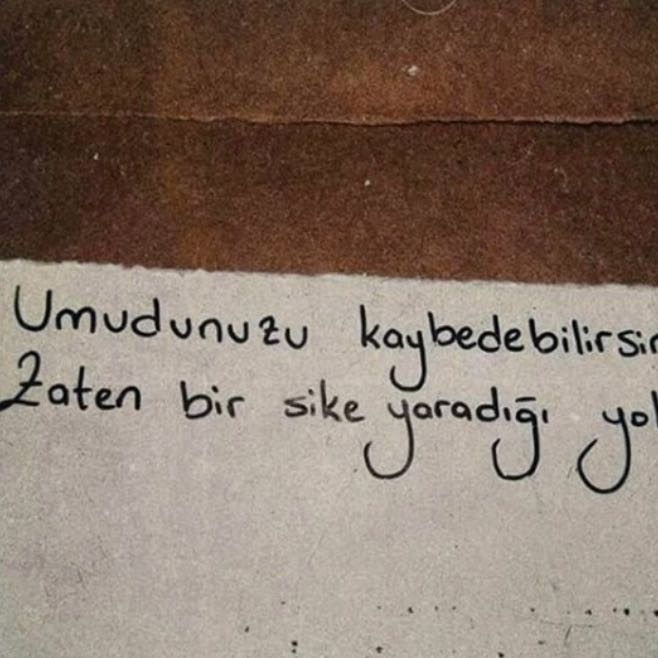 Umudunuzu kaybedebilirsin
Zaten bir sike yaradığı yok